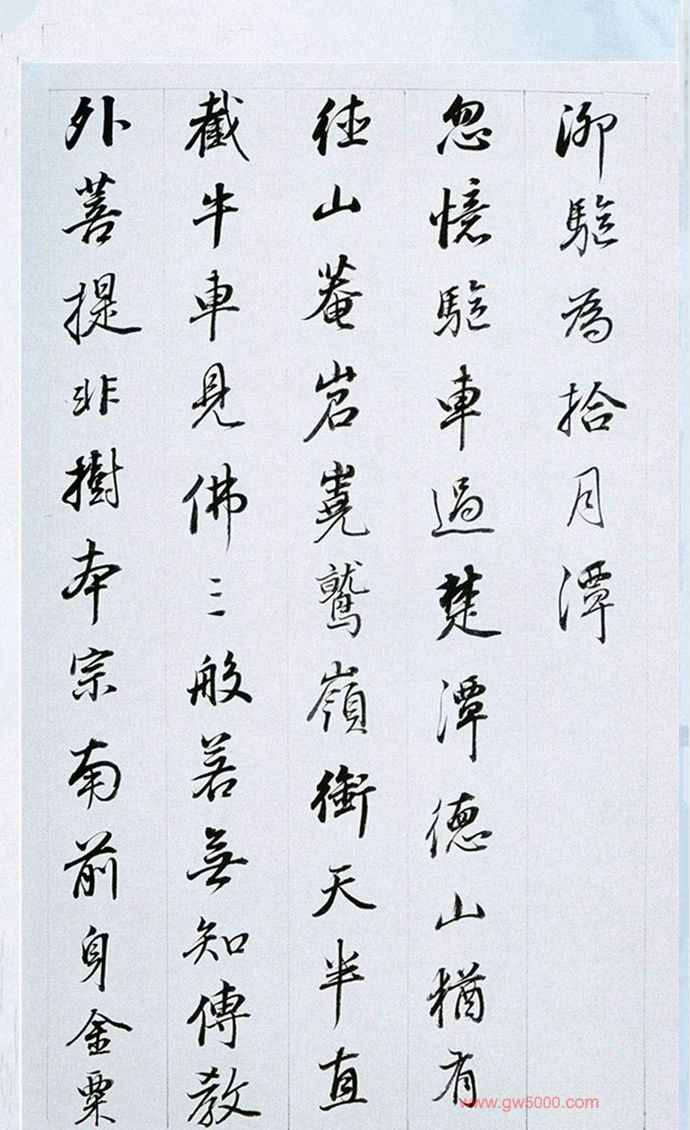 泖駝為拾月潭
忽憶駝車過楚潭德山猶有
徑山菴岧嶤鷲嶺銜天半直
截牛車見佛三般若無知傳教
外菩提非樹本宗南前身金粟
www.gw5000.com